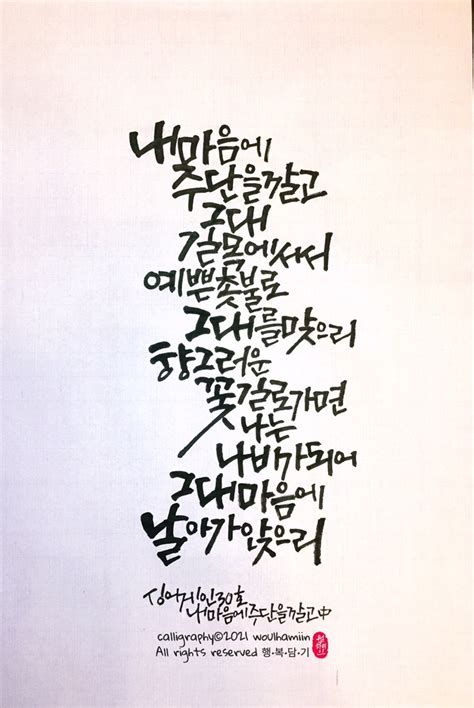 내 마음에
주단을 깔고
그대
길목에 서서
예쁜 촛불로
그대를 맞으리
향그러운
꽃길로 가면
나는
나비가 되어
그대 마음에
날아가 앉으리
싱어게인30호
내 마음에 주단을 깔고 中
calligraphy©2021 woulhamiin
All rights reserved 행·복·담·기